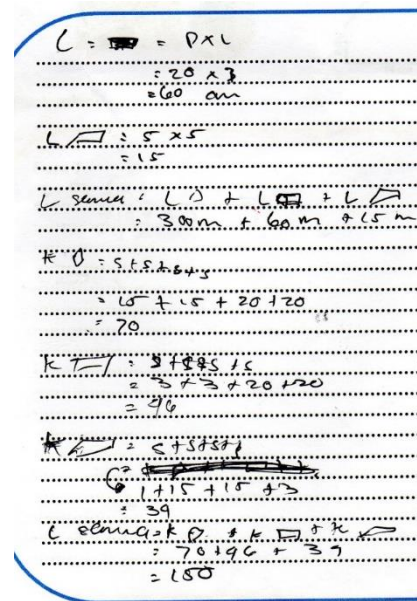 L = = P x L
= 20 x 3
= 60 cm
L ▱ = 5 x 5
= 15
L semua = L + L ▭ + L ▱
= 300 m + 60 m + 15 m
K = s + s + s + s
= 15 + 15 + 20 + 20
= 70
K ▭ = s + s + s + s
= 3 + 3 + 20 + 20
= 46
K ▱ = s + s + s + s
1 + 15 + 15 + 3
= 39
semua = K + K ▭ + K ▱
= 70 + 46 + 39
= 150